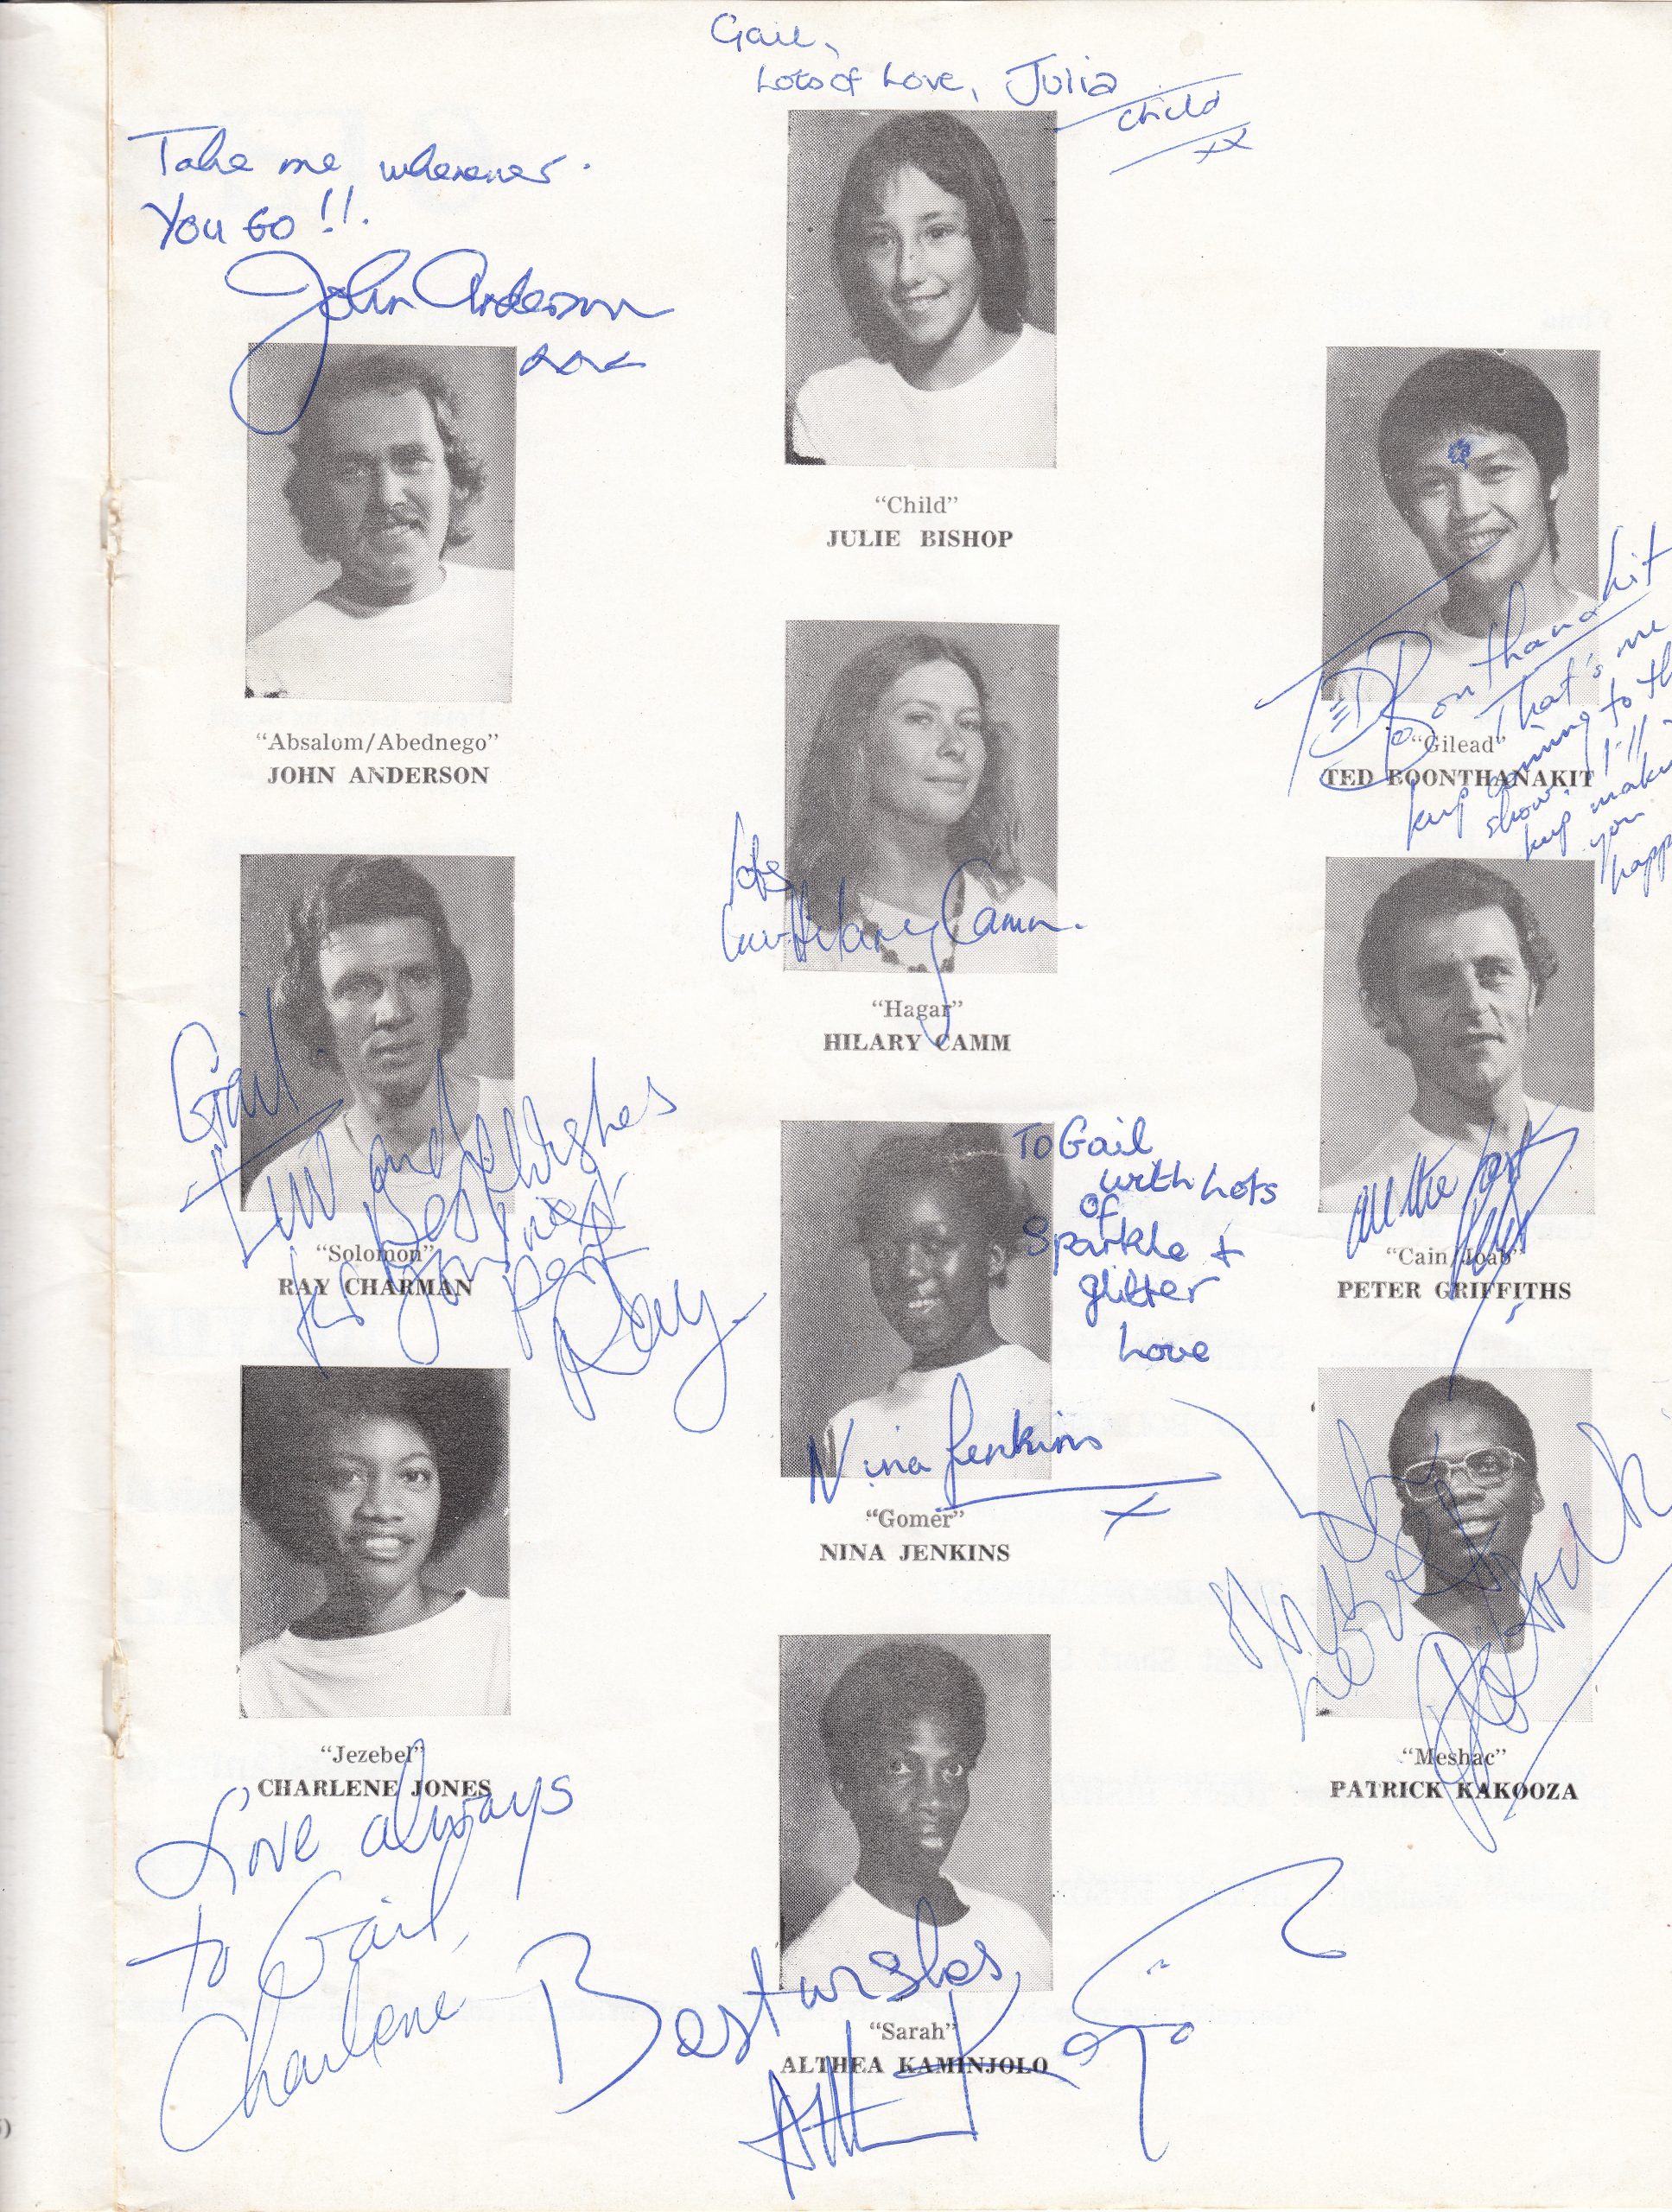 Gail,
Lots of Love, Julia
child
xx
Take me wherever
You Go!!.
John Anderson
xxx
"Child"
JULIE BISHOP
"Absalom/Abednego"
JOHN ANDERSON
TED Boonthanakit
That's me
keep coming to th
show. I'll
keep makin
you
happ
"Gilead"
TED BOONTHANAKIT
lots
love Hilary Camm.
"Hagar"
HILARY CAMM
Gail.
Luv and Best Wishes
for your next
part
Ray
"Solomon"
RAY CHARMAN
To Gail
with Lots
of
Sparkle +
glitter
Love
Nina Jenkins
x
"Gomer"
NINA JENKINS
all the best
Peter
"Cain/Joab"
PETER GRIFFITHS
"Jezebel"
CHARLENE JONES
Love always
to Gail,
Charlene
Love
Patrick
"Meshac"
PATRICK KAKOOZA
Best wishes,
"Sarah"
ALTHEA KAMINJOLO